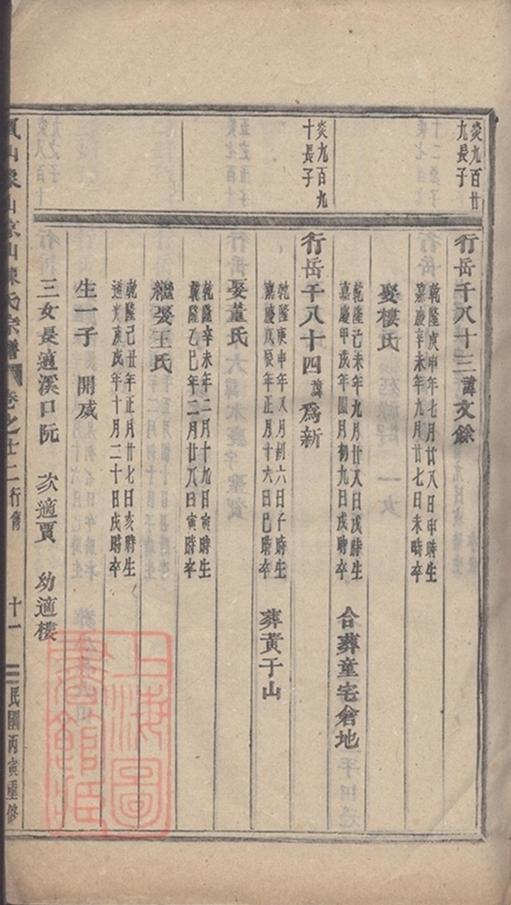 炎九百廿
九長子
行岳千八十三諱文餘
乾隆庚申年七月廿八日申時生
嘉慶辛未年九月廿七日未時卒
娶樓氏
乾隆己未年九月廿八日戌時生
嘉慶甲戌年四月初九日戌時卒
合葬童宅倉地
炎九百九
十長子
行岳千八十四諱爲新
乾隆庚申年又月初六日子時生
嘉慶丙辰年十月十六日巳時卒
葬黃于山
娶董氏
乾隆辛未年二月十九日寅時生
乾隆乙巳年二月廿八日寅時卒
繼娶王氏
乾隆己丑年正月廿七日亥時生
道光庚戌年十月二十日戌時卒
生一子 開威
三女長適溪口阮 次適賈 幼適樓
山陳氏宗譜 卷之十二行傳 十一 民國丙寅重修
上海圖書館藏